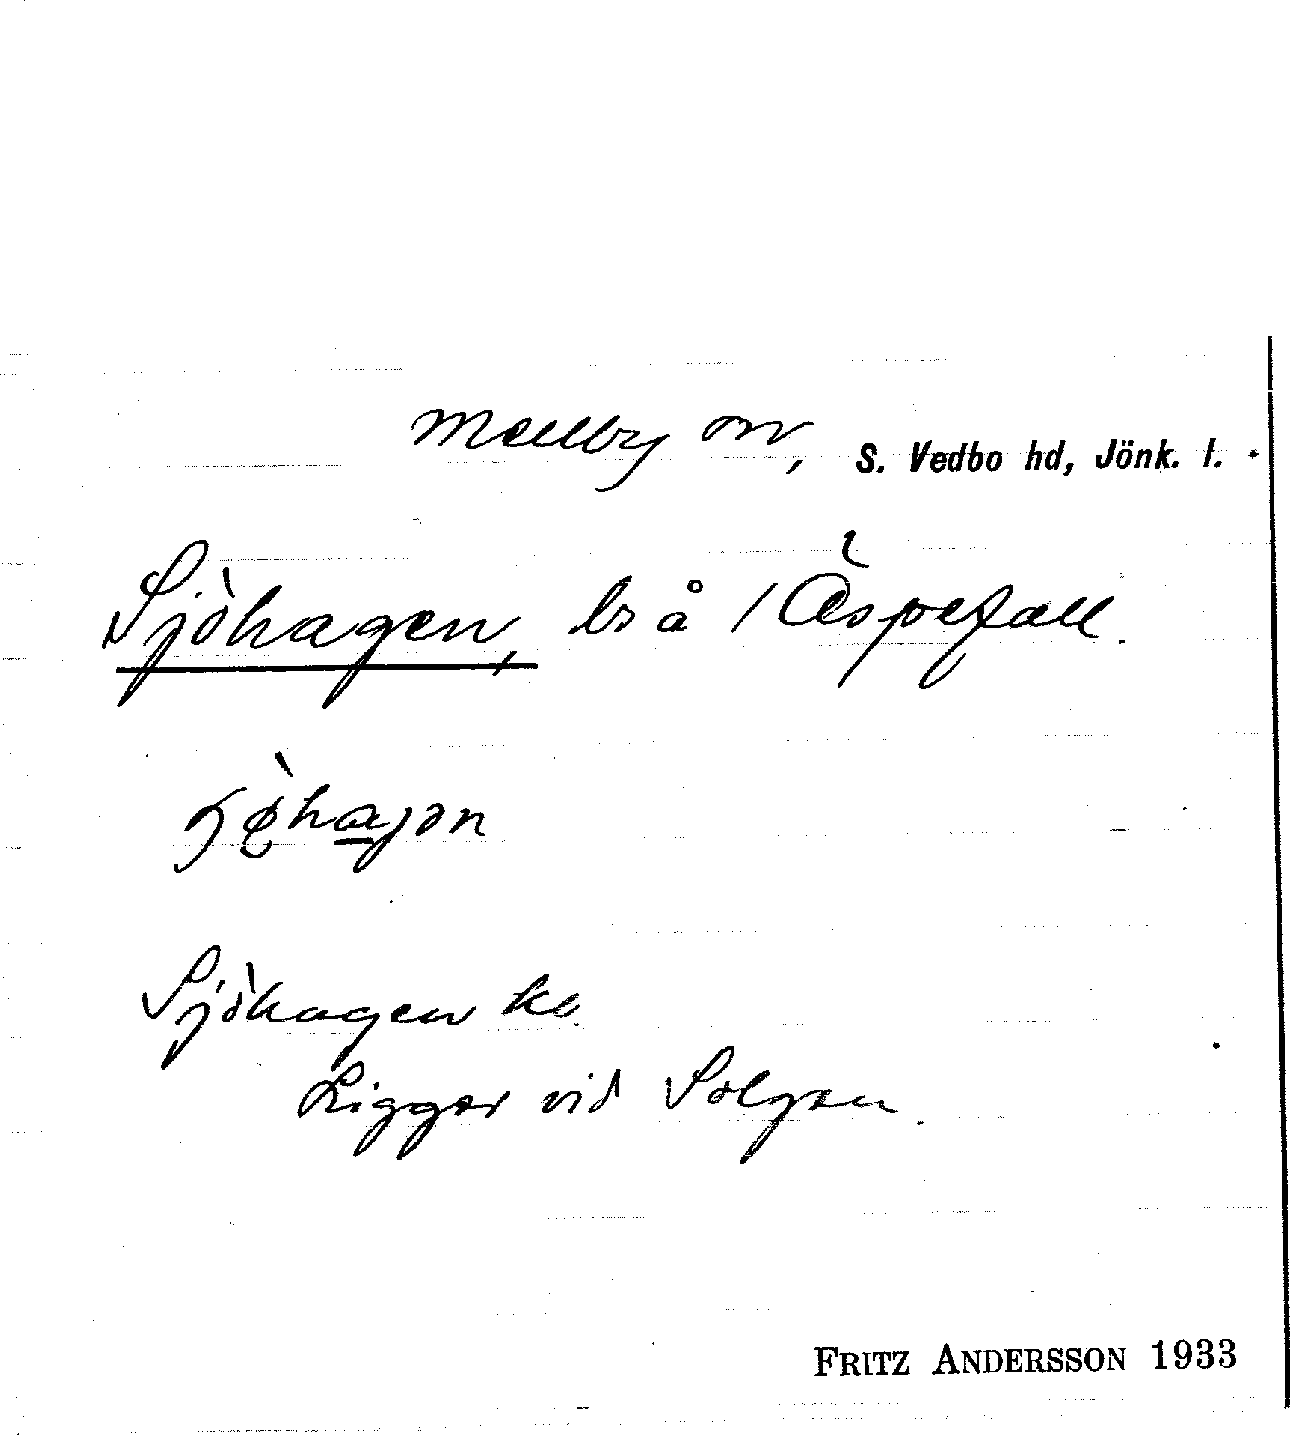 Mellby sn, S. Vedbo hd, Jönk. l.
Sjöhagen, bs å 1 Äspefall.
Sjöhagen ke
Ligger vid Solgen.
FRITZ ANDERSSON 1933